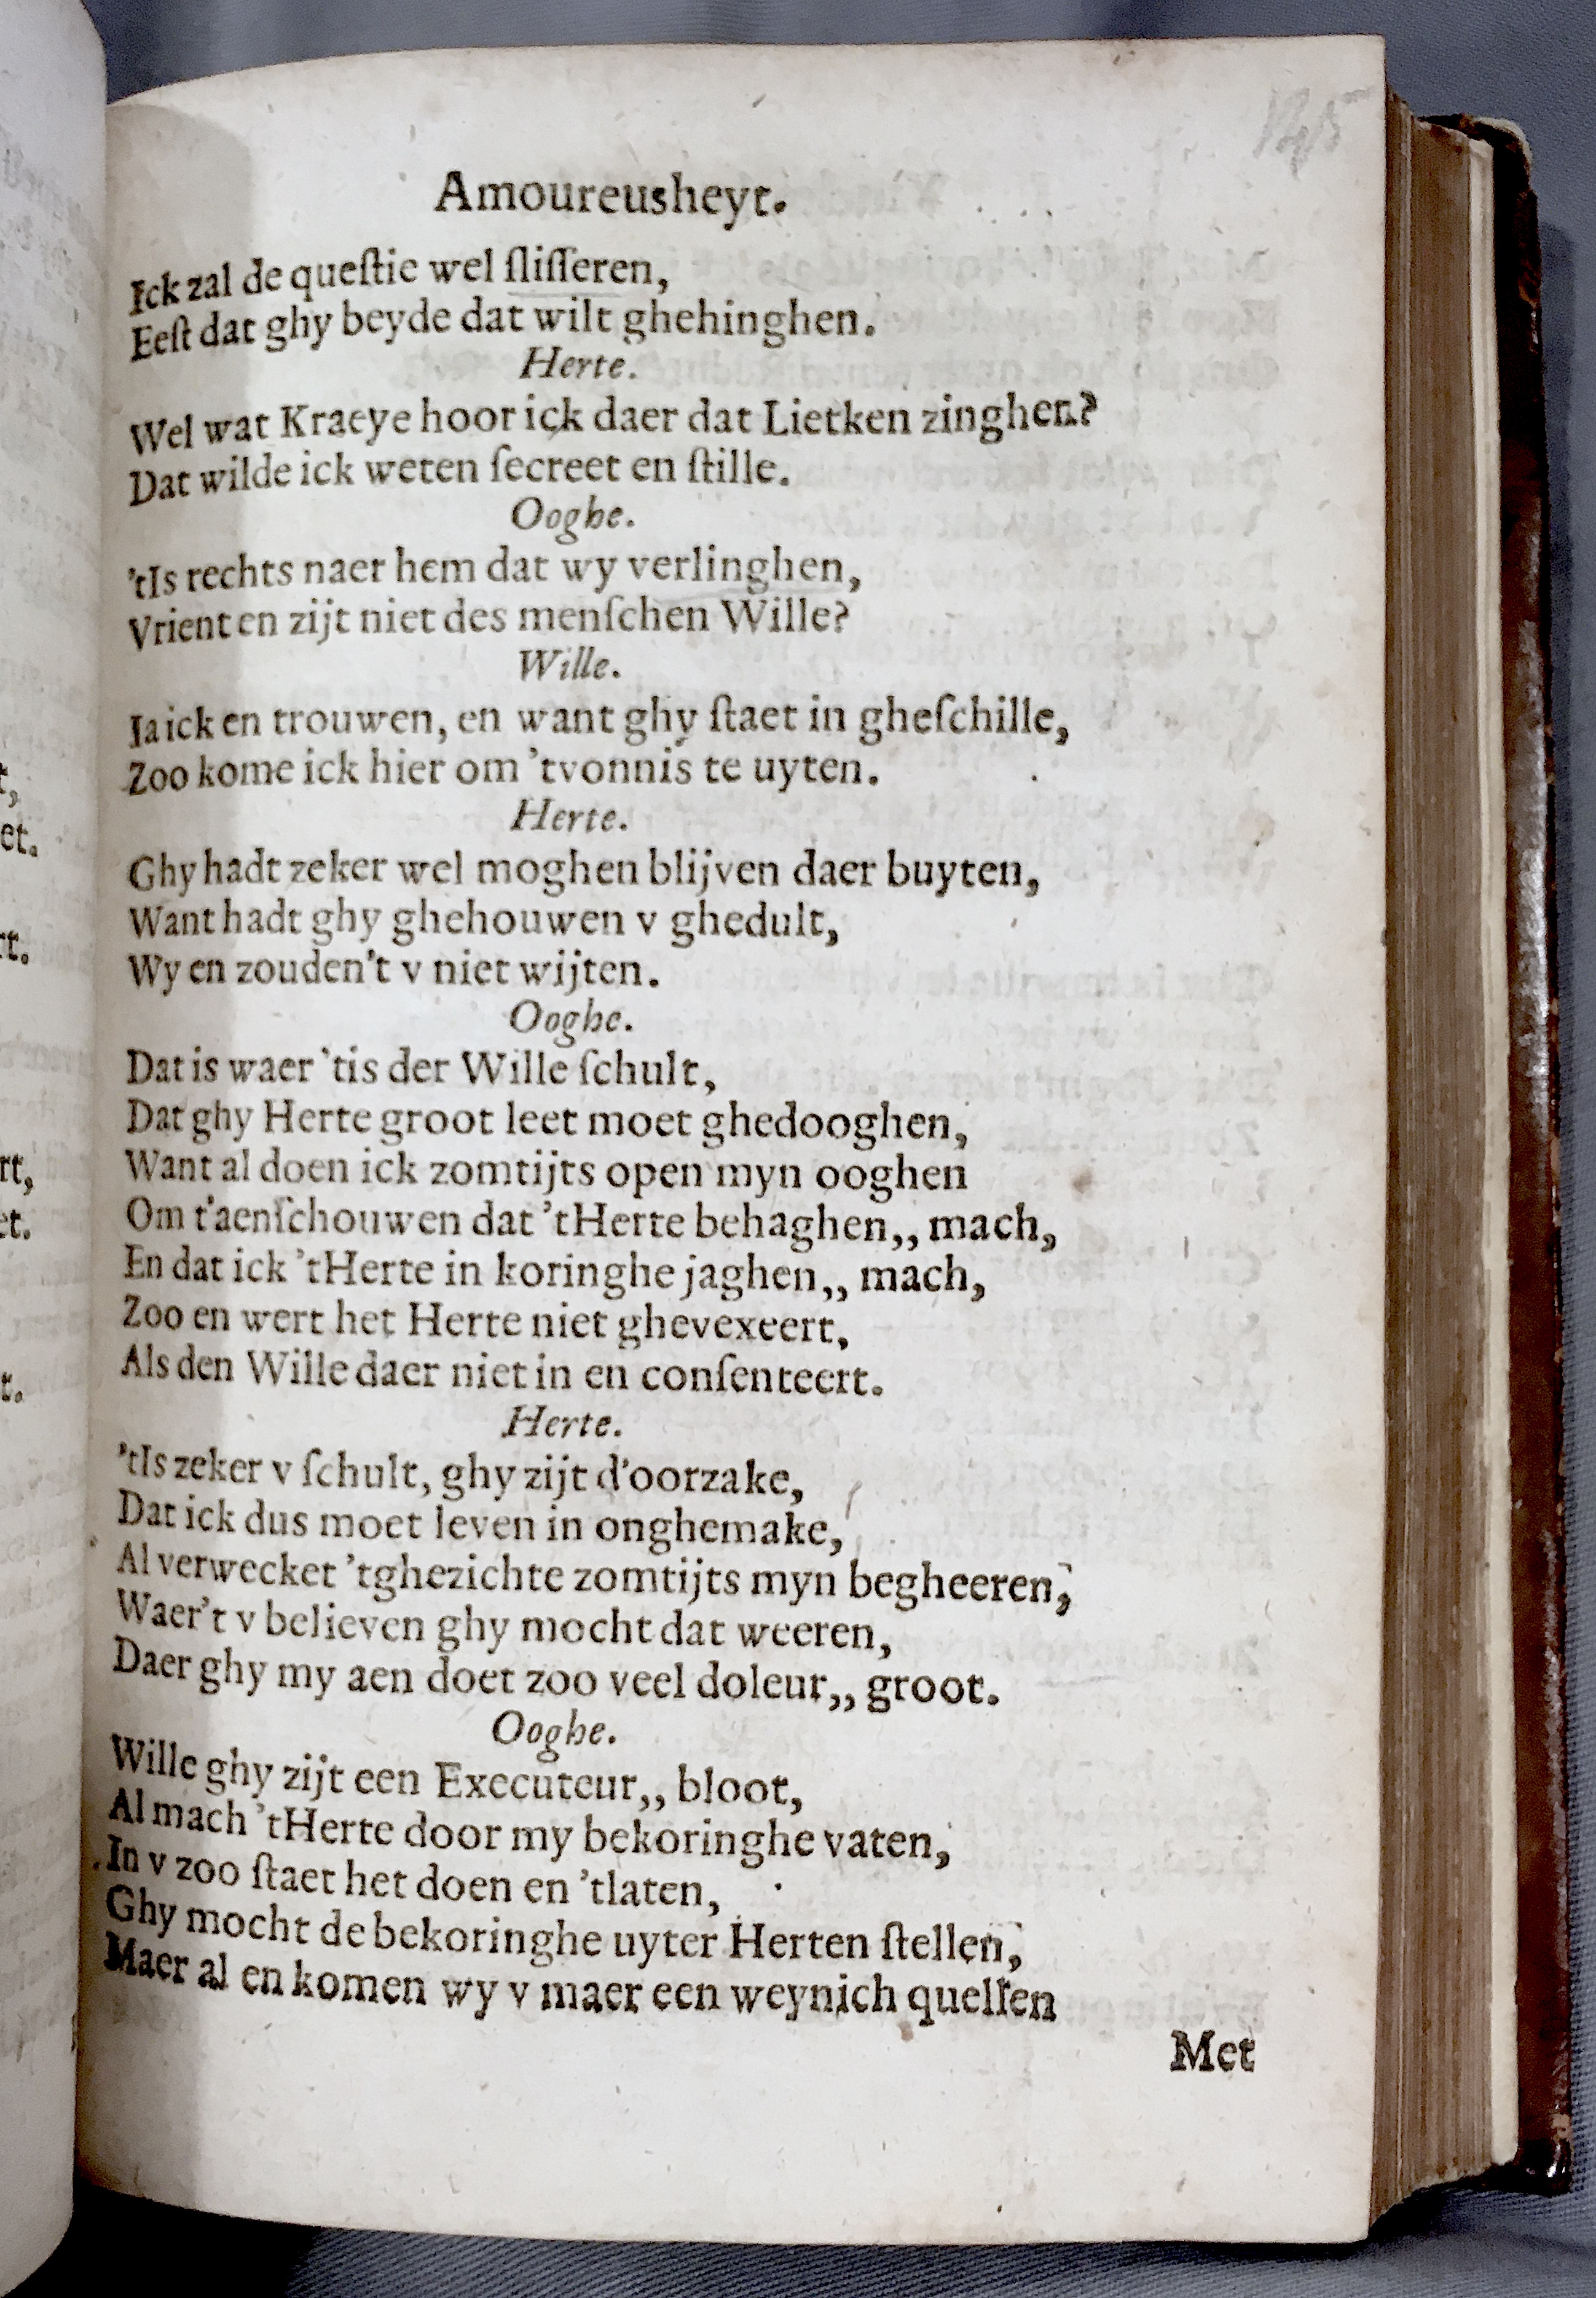 125
Amoureusheyt.
Ick zal de queſtie wel ſliſſeren,
Eeſt dat ghy beyde dat wilt ghehinghen.
Herte.
Wel wat Kraeye hoor ick daer dat Lietken zinghen?
Dat wilde ick weten ſecreet en ſtille.
Ooghe.
'tIs rechts naer hem dat wy verlinghen,
Vrient en zijt niet des menſchen Wille?
Wille.
Ia ick en trouwen, en want ghy ſtaet in gheſchille,
Zoo kome ick hier om 'tvonnis te uyten.
Herte.
Ghy hadt zeker wel moghen blijven daer buyten,
Want hadt ghy ghehouwen v ghedult,
Wy en zouden't v niet wijten.
Ooghe.
Dat is waer 'tis der Wille ſchult,
Dat ghy Herte groot leet moet ghedooghen,
Want al doen ick zomtijts open myn ooghen
Om t'aenſchouwen dat 'tHerte behaghen,, mach,
En dat ick 'tHerte in koringhe jaghen,, mach,
Zoo en wert het Herte niet ghevexeert,
Als den Wille daer niet in en conſenteert.
Herte.
'tIs zeker v ſchult, ghy zijt d'oorzake,
Dat ick dus moet leven in onghemake,
Al verwecket 'tghezichte zomtijts myn begheeren,
Waer't v believen ghy mocht dat weeren,
Daer ghy my aen doet zoo veel doleur,, groot.
Ooghe.
Wille ghy zijt een Executeur,, bloot,
Al mach 'tHerte door my bekoringhe vaten,
In v zoo ſtaet het doen en 'tlaten,
Ghy mocht de bekoringhe uyter Herten ſtellen,
Maer al en komen wy v maer een weynich quellen
Met